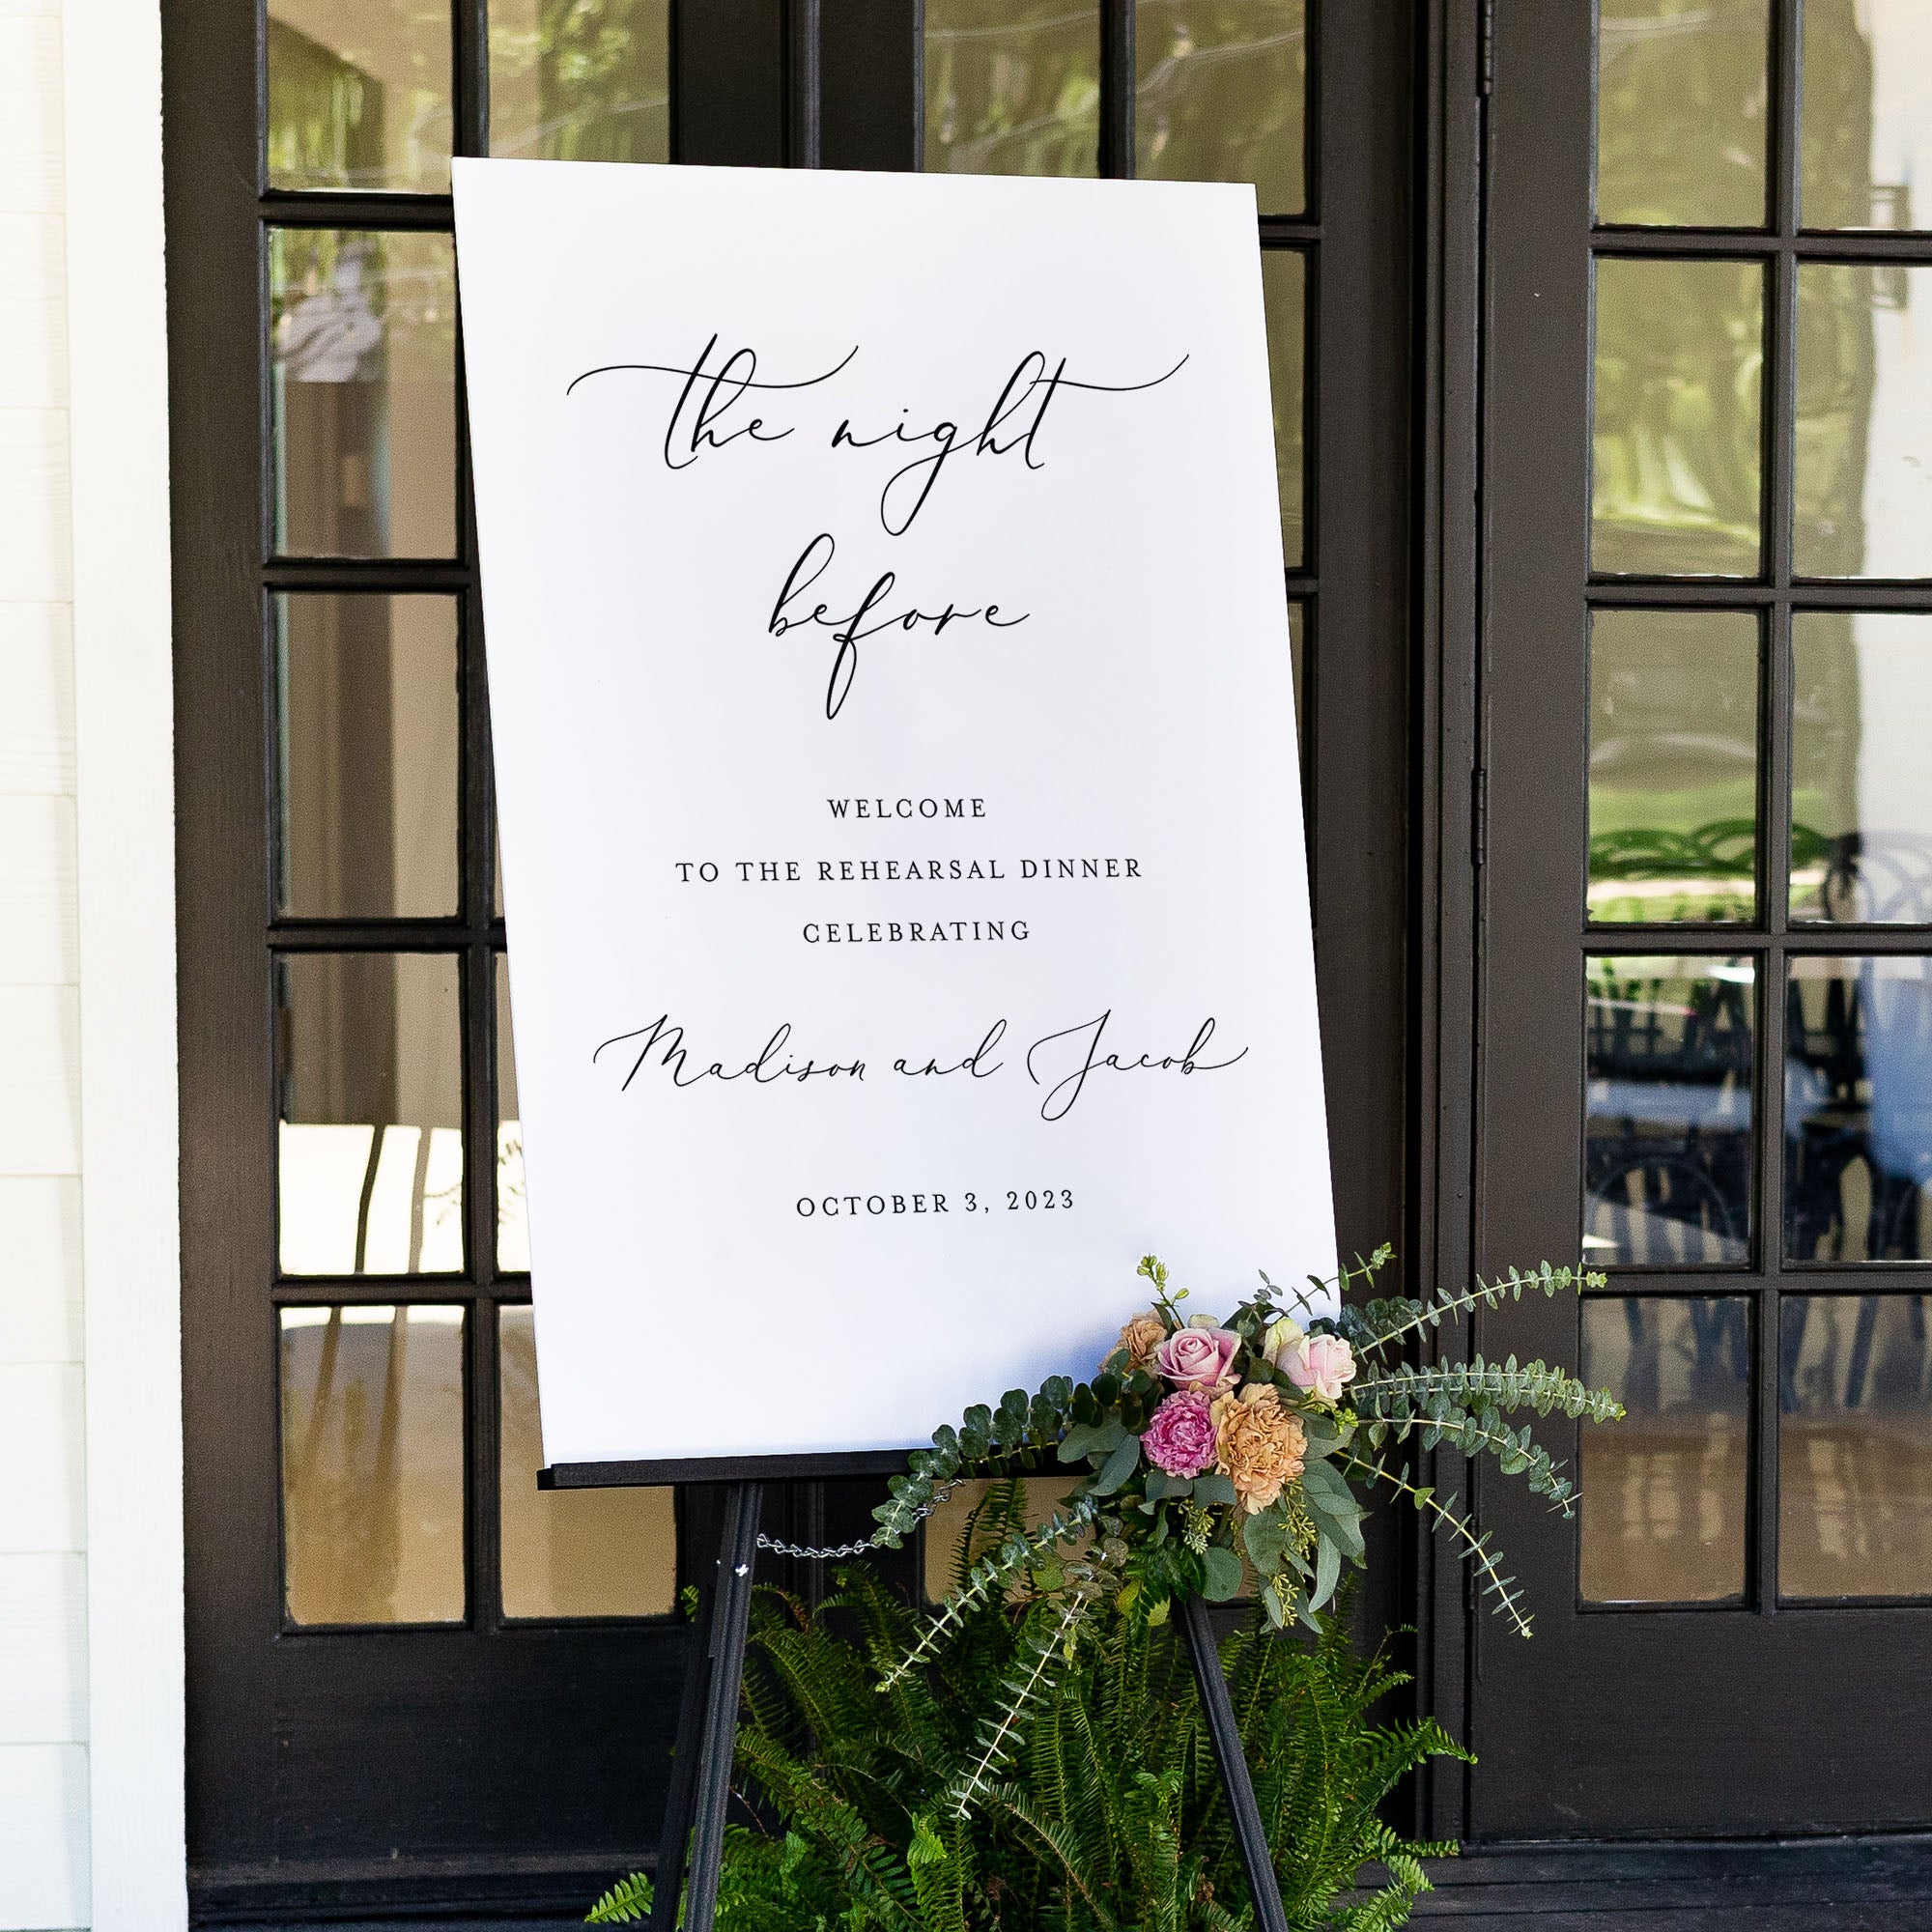 the night
before
WELCOME
TO THE REHEARSAL DINNER
CELEBRATING
Madison and Jacob
OCTOBER 3, 2023